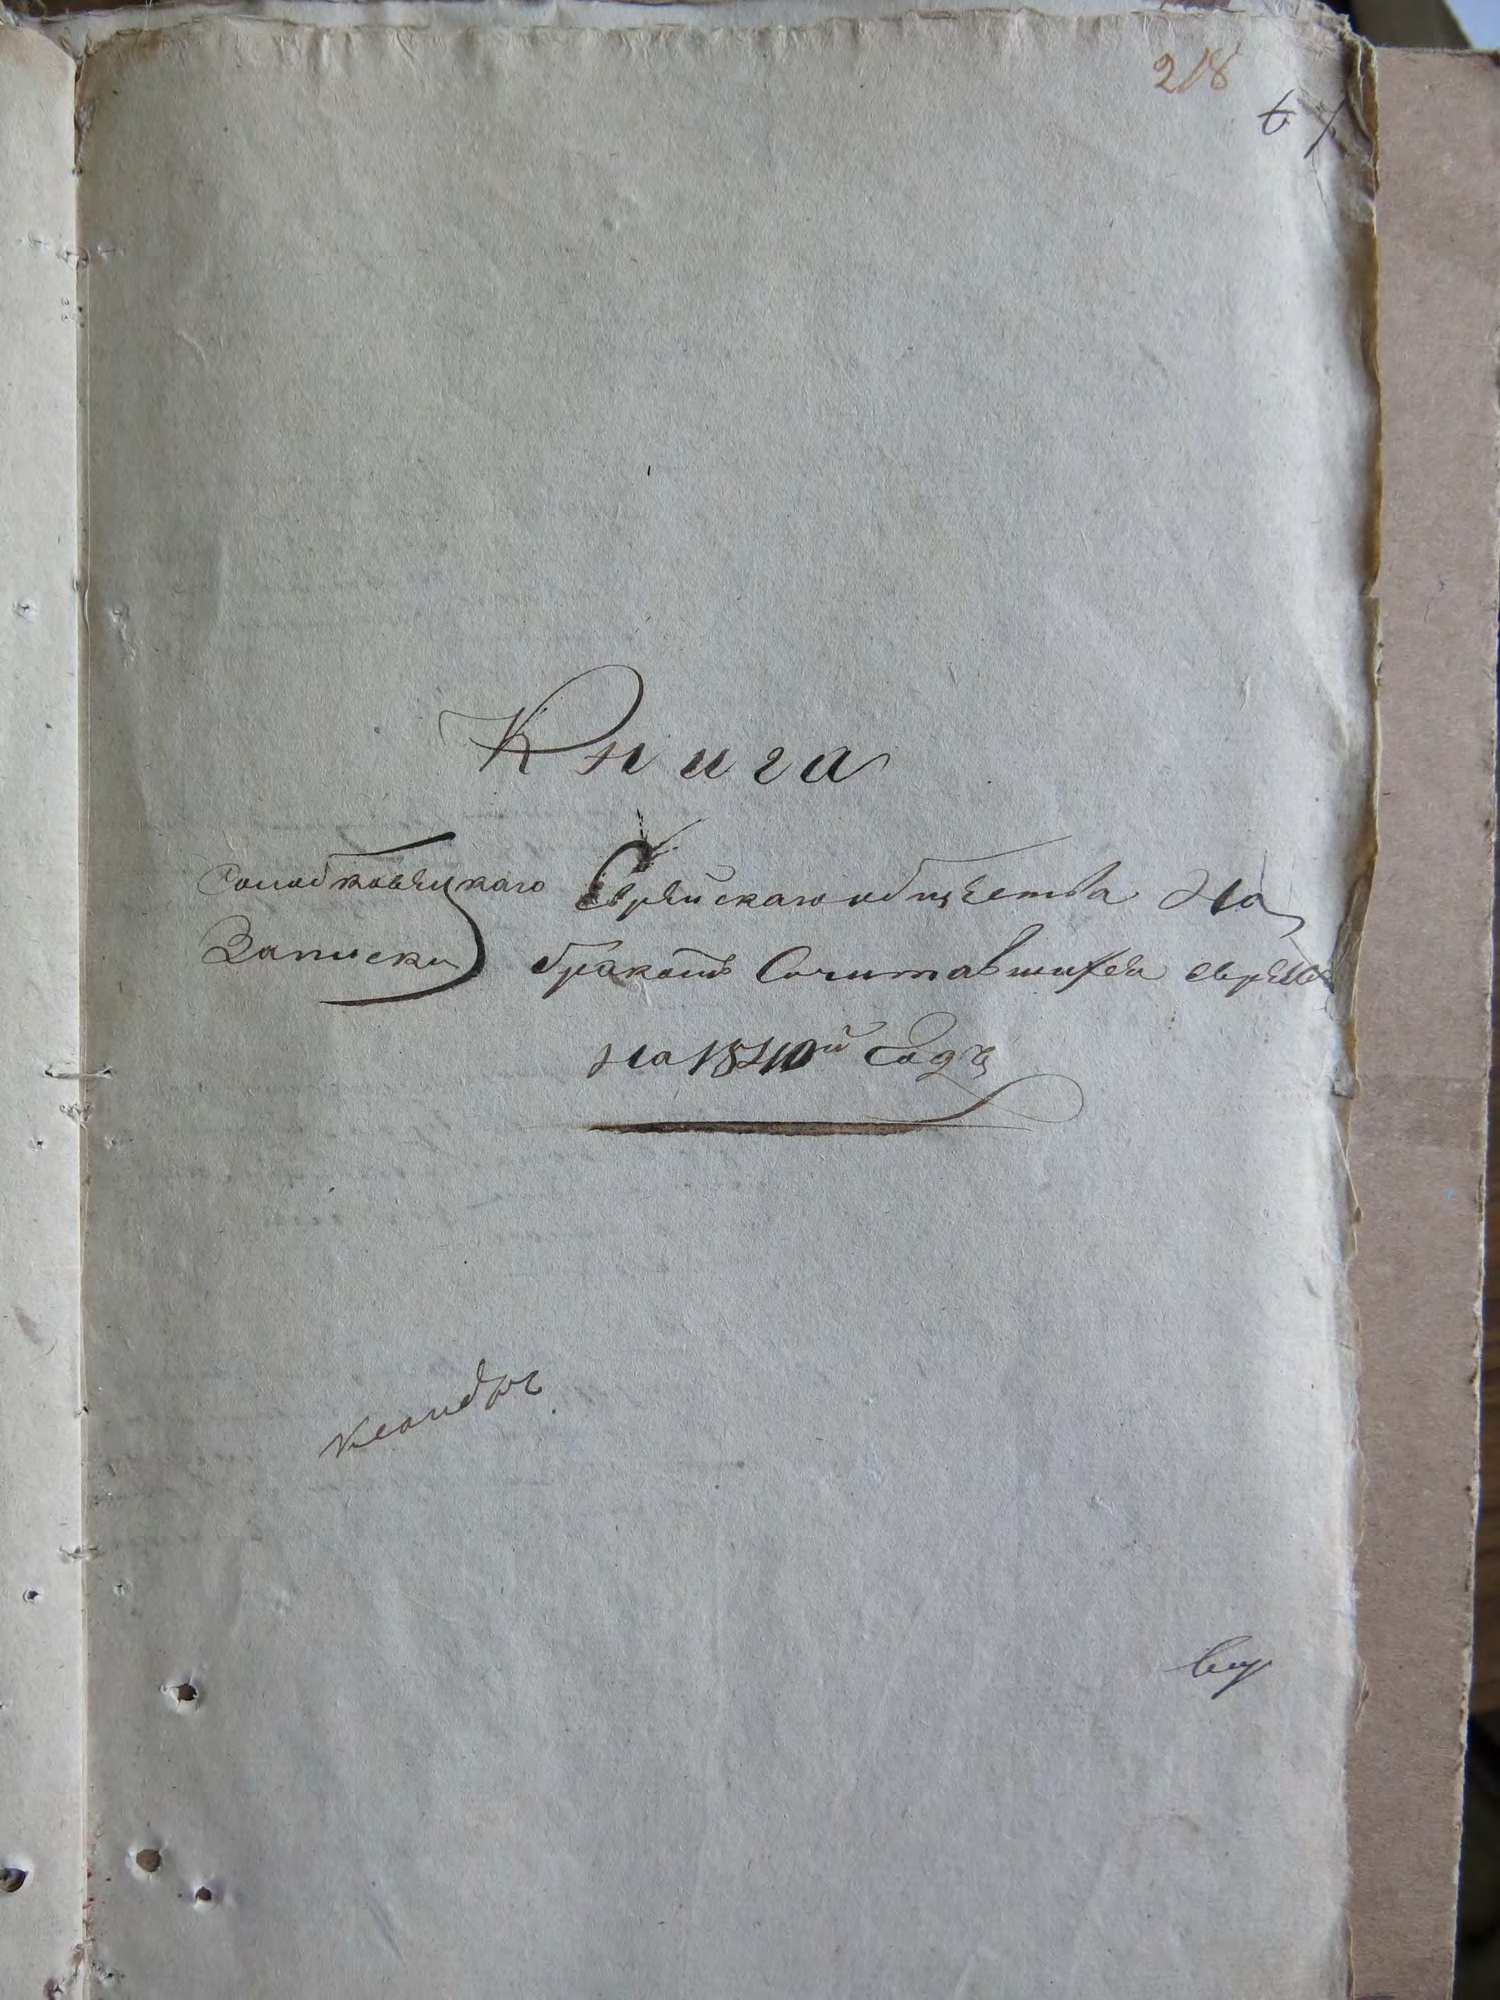 218
Книга
Солобковецкаго Еврейскаго общества на
Записки бракомъ Сочитавшихся евреевъ
на 1840й Годъ